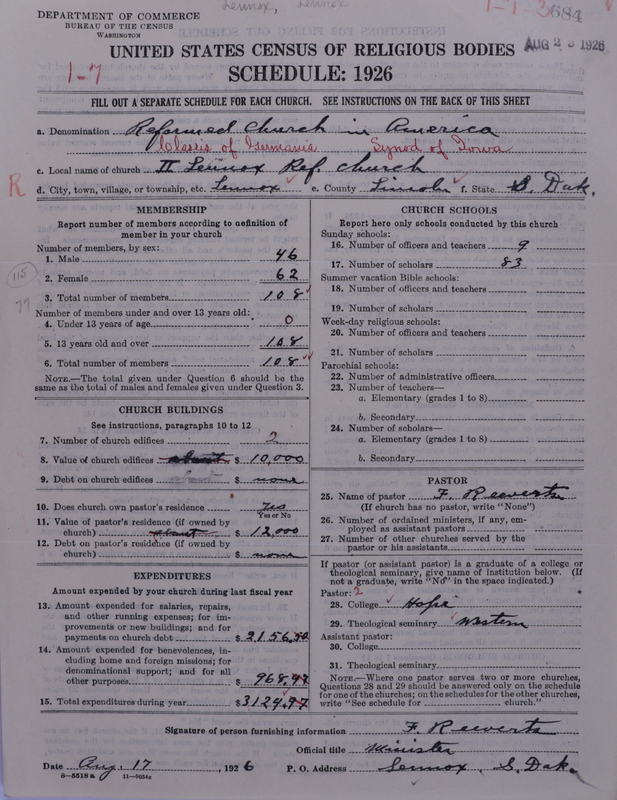 Lennox, Lennox
DEPARTMENT OF COMMERCE
BUREAU OF THE CENSUS
WASHINGTON
1-1-3684
AUG 2 1926
UNITED STATES CENSUS OF RELIGIOUS BODIES
1-7
SCHEDULE: 1926
FILL OUT A SEPARATE SCHEDULE FOR EACH CHURCH. SEE INSTRUCTIONS ON THE BACK OF THIS SHEET
a. Denomination Reformed Church in America
Classis of Germania Synod of Iowa
c. Local name of church II Lennox Ref. church
R
d. City, town, village, or township, etc. Lennox e. County Lincoln f. State S. Dak.
MEMBERSHIP
Report number of members according to definition of
member in your church
Number of members, by sex:
1. Male 46
2. Female 62
115
3. Total number of members 108
77
Number of members under and over 13 years old:
4. Under 13 years of age 0
5. 13 years old and over 108
6. Total number of members 108
NOTE.—The total given under Question 6 should be the
same as the total of males and females given under Question 3.
CHURCH BUILDINGS
See instructions, paragraphs 10 to 12
7. Number of church edifices 2
8. Value of church edifices about $ 10,000
9. Debt on church edifices $ none
10. Does church own pastor's residence yes
Yes or No
11. Value of pastor's residence (if owned by
church) about $ 12,000
12. Debt on pastor's residence (if owned by
church) $ none
EXPENDITURES
Amount expended by your church during last fiscal year
13. Amount expended for salaries, repairs,
and other running expenses; for im-
provements or new buildings; and for
payments on church debt $ 2156.50
14. Amount expended for benevolences, in-
cluding home and foreign missions; for
denominational support; and for all
other purposes $ 968.47
15. Total expenditures during year $ 3124.97
CHURCH SCHOOLS
Report here only schools conducted by this church
Sunday schools:
16. Number of officers and teachers 9
17. Number of scholars 83
Summer vacation Bible schools:
18. Number of officers and teachers
19. Number of scholars
Week-day religious schools:
20. Number of officers and teachers
21. Number of scholars
Parochial schools:
22. Number of administrative officers
23. Number of teachers—
a. Elementary (grades 1 to 8)
b. Secondary
24. Number of scholars—
a. Elementary (grades 1 to 8)
b. Secondary
PASTOR
25. Name of pastor F. Reeverts
(If church has no pastor, write "None")
26. Number of ordained ministers, if any, em-
ployed as assistant pastors
27. Number of other churches served by the
pastor or his assistants
If pastor (or assistant pastor) is a graduate of a college or
theological seminary, give name of institution below. (If
not a graduate, write "No" in the space indicated.)
Pastor: 2
28. College Hope
29. Theological seminary Western
Assistant pastor:
30. College
31. Theological seminary
NOTE.—Where one pastor serves two or more churches,
Questions 28 and 29 should be answered only on the schedule
for one of the churches; on the schedules for the other churches,
write "See schedule for church."
Signature of person furnishing information F. Reeverts
Official title Minister
Date Aug. 17, 1926 P. O. Address Lennox, S. Dak.
8—5518 a 11—9054a